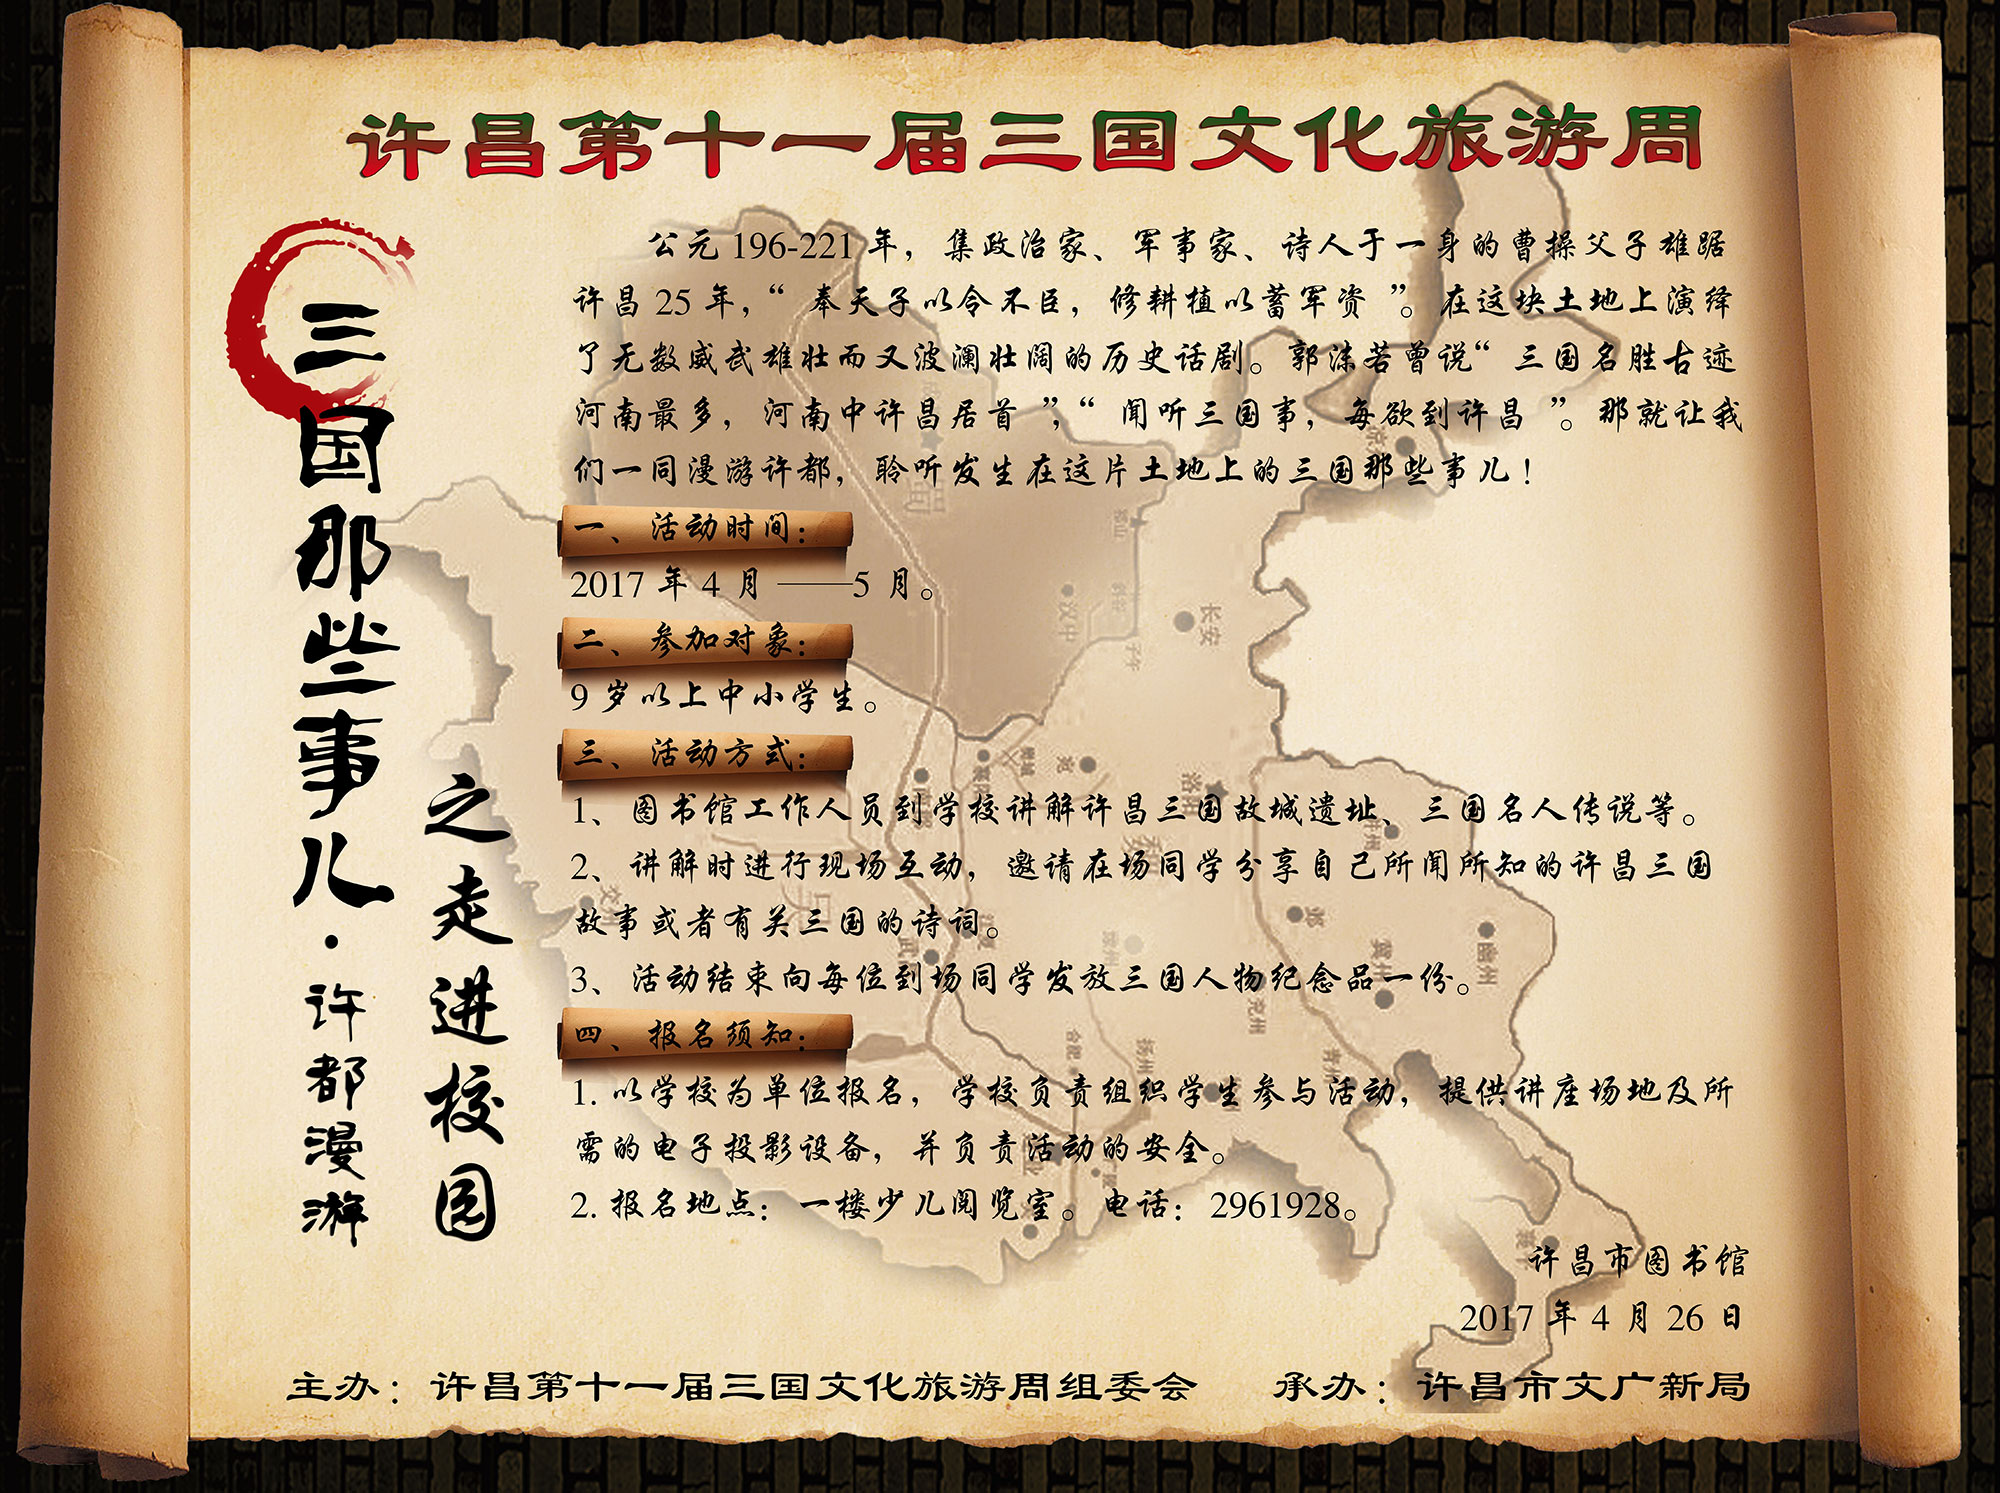 许昌第十一届三国文化旅游周
三国那些事儿·许都漫游
之走进校园
公元 196-221 年，集政治家、军事家、诗人于一身的曹操父子雄踞
许昌 25 年，“奉天子以令不臣，修耕植以蓄军资”。在这块土地上演绎
了无数威武雄壮而又波澜壮阔的历史话剧。郭沫若曾说“三国名胜古迹
河南最多，河南中许昌居首”，“闻听三国事，每欲到许昌”。那就让我
们一同漫游许都，聆听发生在这片土地上的三国那些事儿！
一、活动时间：
2017 年 4 月 ——5 月。
二、参加对象：
9 岁以上中小学生。
三、活动方式：
1、图书馆工作人员到学校讲解许昌三国故城遗址、三国名人传说等。
2、讲解时进行现场互动，邀请在场同学分享自己所闻所知的许昌三国
故事或者有关三国的诗词。
3、活动结束向每位到场同学发放三国人物纪念品一份。
四、报名须知：
1. 以学校为单位报名，学校负责组织学生参与活动，提供讲座场地及所
需的电子投影设备，并负责活动的安全。
2. 报名地点：一楼少儿阅览室。电话：2961928。
许昌市图书馆
2017 年 4 月 26 日
主办：许昌第十一届三国文化旅游周组委会 承办：许昌市文广新局
长安
汉中
冀州
幽州
兖州
扬州
合肥